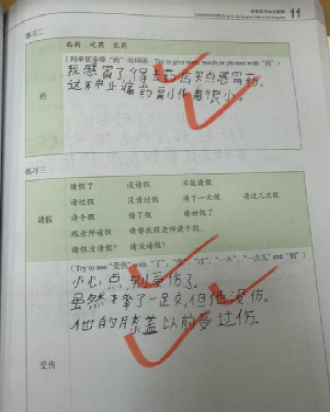 11
练习二
西药 吃药 卖药
药
(列举更多带“药”的词语. Try to give more words or phrases with "药")
我感冒了得去药店买点感冒药。
这种止痛药副作用很小。
练习三
请假
请假了 没请假 不能请假
请过假 没请过假 请了一次假 请过几次假
请个假 请了假 请好假了
跟老师请假 请你跟老师请个假。
请假没请假? 请没请假?
受伤
(Try to use "受伤" with "了", "没", "过", "一次", "一点儿" and "别")
小心点,别受伤了。
虽然摔了一跤,但他没伤。
他的膝盖以前受过伤。